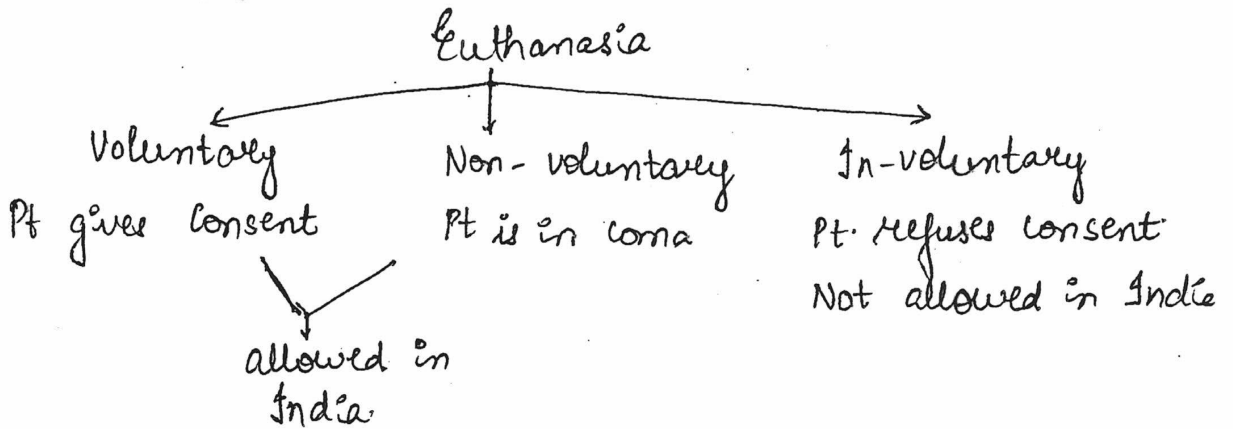 Euthanasia
Voluntary
Pt gives Consent
Non-voluntary
Pt is in coma
In-voluntary
Pt. refuses consent
Not allowed in India
allowed in
India.